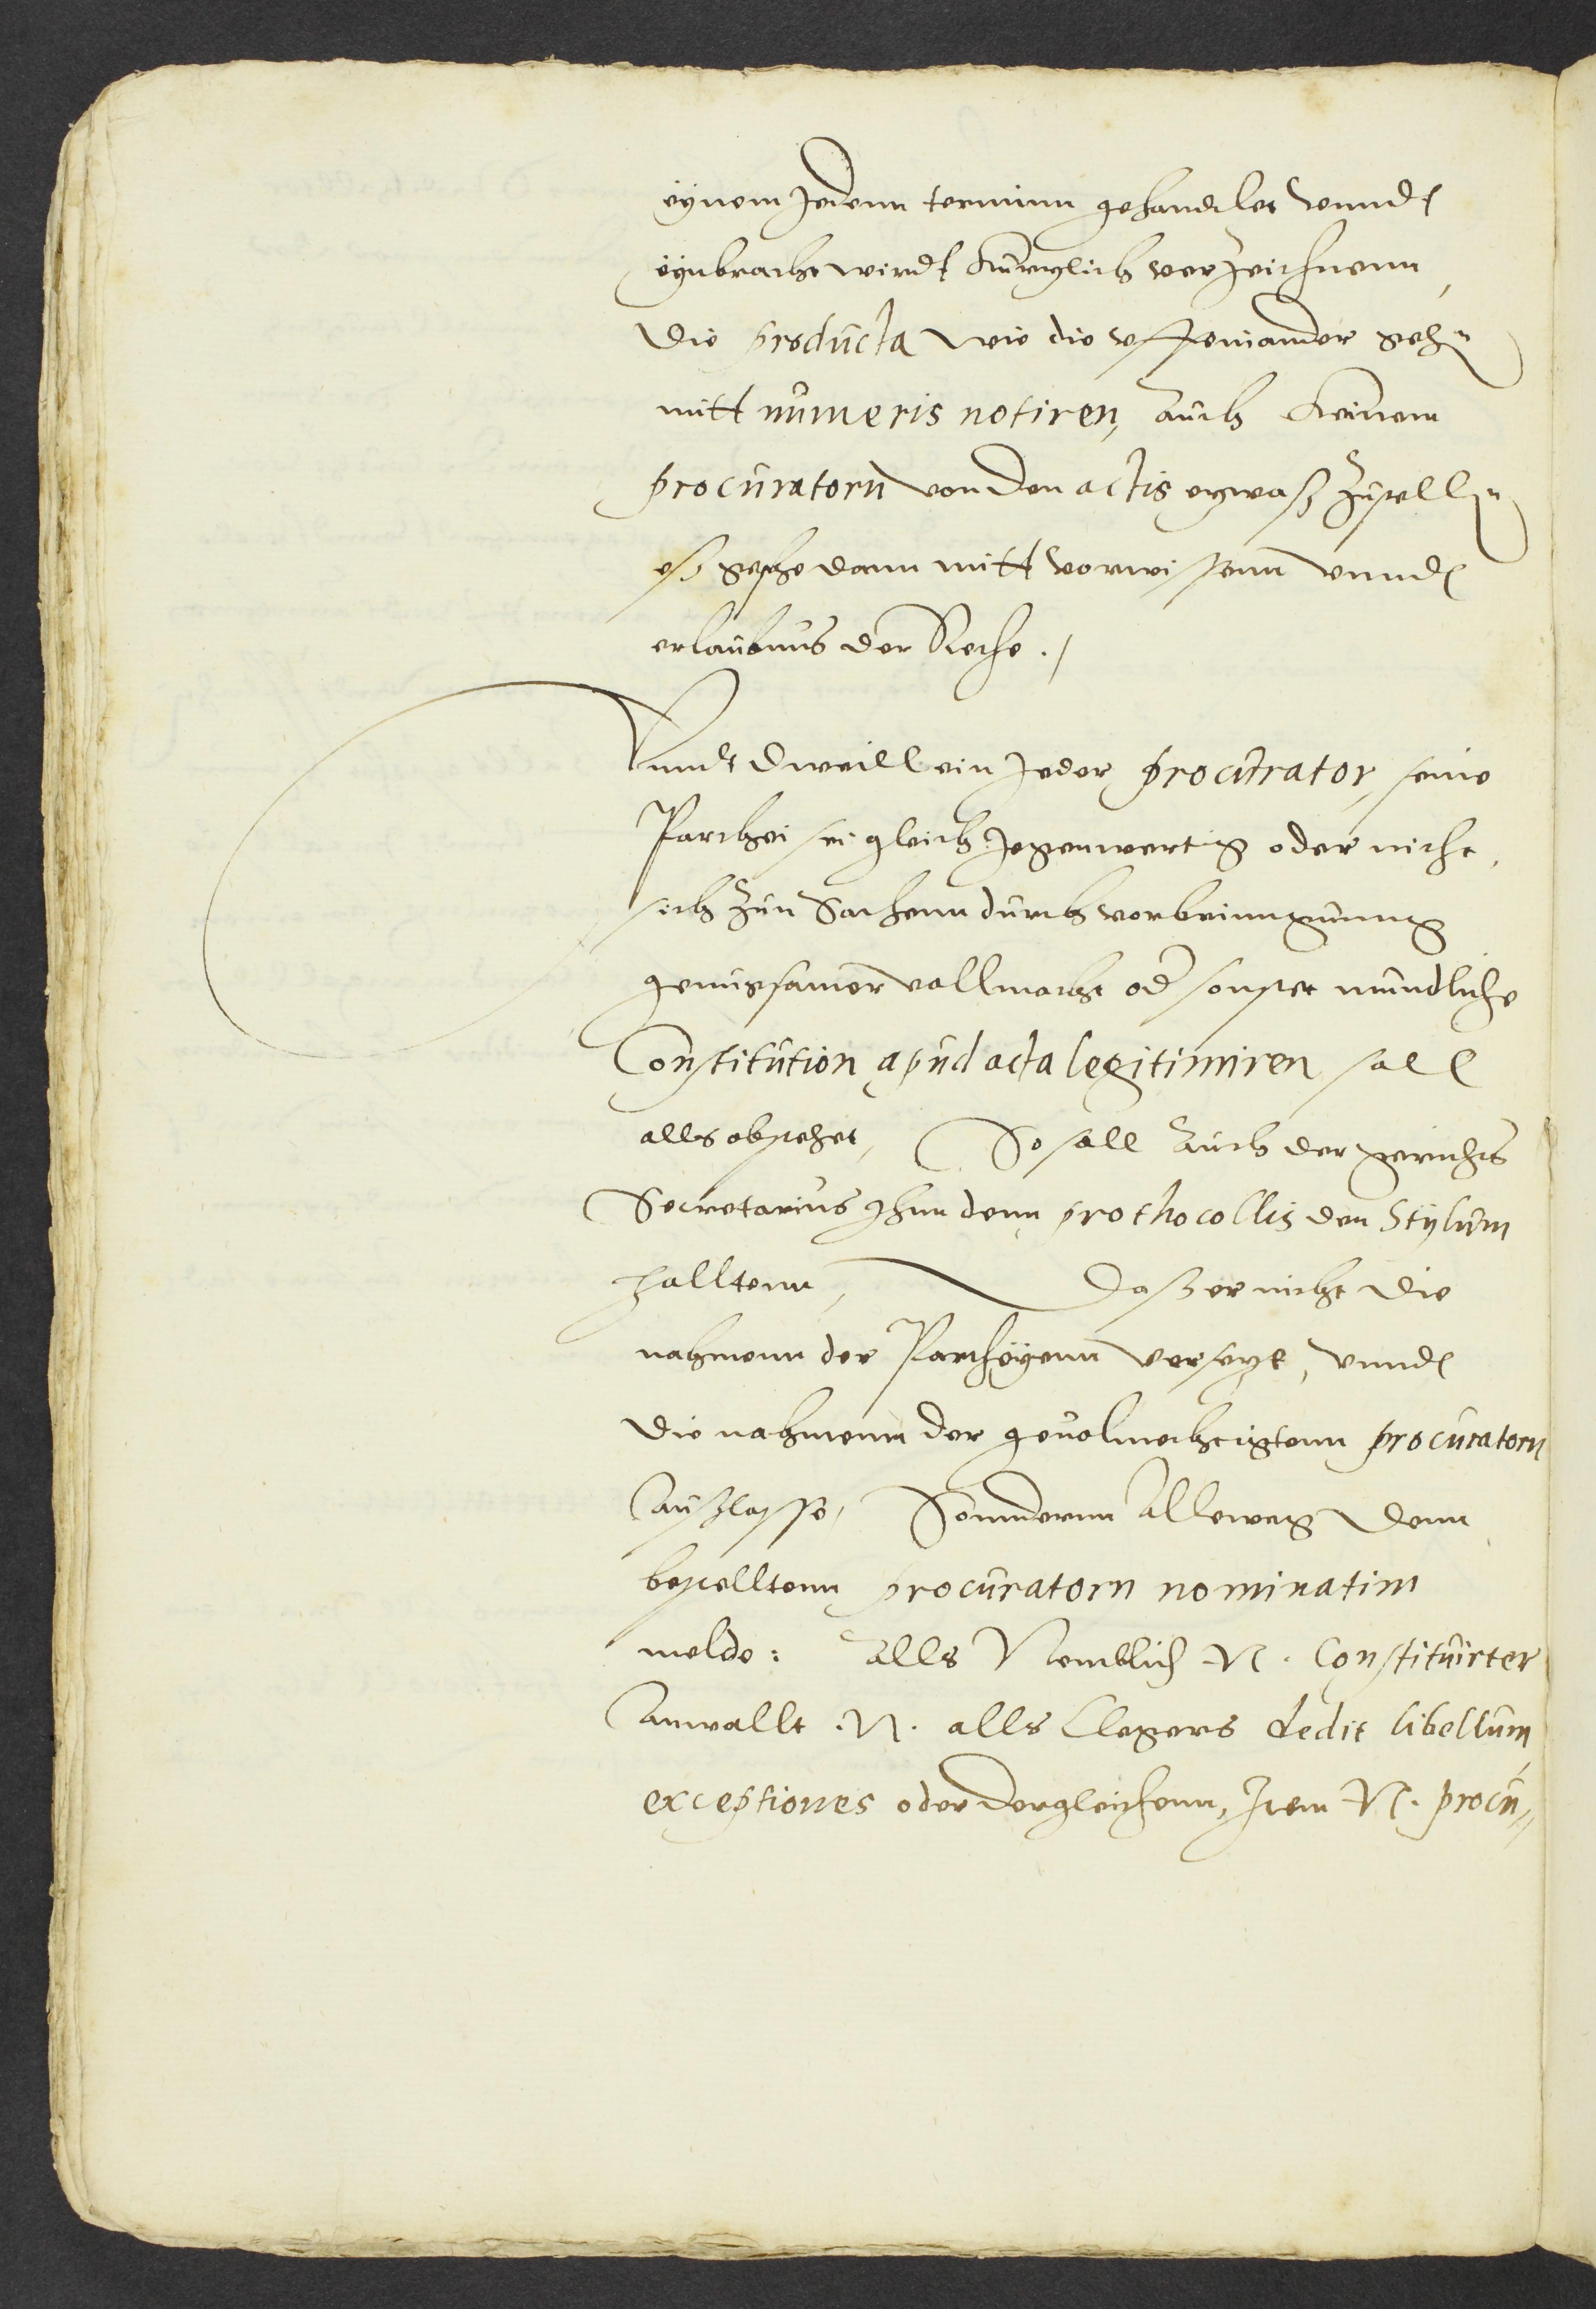 eÿnem Jedenn terminn gehandlet vnndt
eÿnbracht wirdt kurtzlich verzeichnenn,
die producta wie die vffeinander gehn
mitt numeris notiren, auch keinem
procuratorn von den actis etzwaß zustelln
eß geschehe dann mitt vorwissenn vnnd
erlaubnus der Rethe ./
Vnndt dweill ein Jeder procurator, seine
Parthei sei gleich Jegenwertig oder nicht,
sich zun Sachenn durch vorbringunng
genugsamer vollmacht od sonstet mundliche
Constitution apud acta legitimiren sall
alls obstehet, So sall auch der gerichts
Secretarius Ihnn denn prothocollis den Stylum
halltenn, Daß er nicht die
nahmenn der Partheÿenn versetzt, vnnd
die nahmenn der gevolmechtigtenn procuratorn
außlasse, Sonndernn alleweg denn
bestelltenn procuratorn nominatim
melde: alls Nemblich N. Constituirter
Anwallt .N. alls Clegers dedit libellum,
exceptiones oder dergleichenn, Item N. procu//